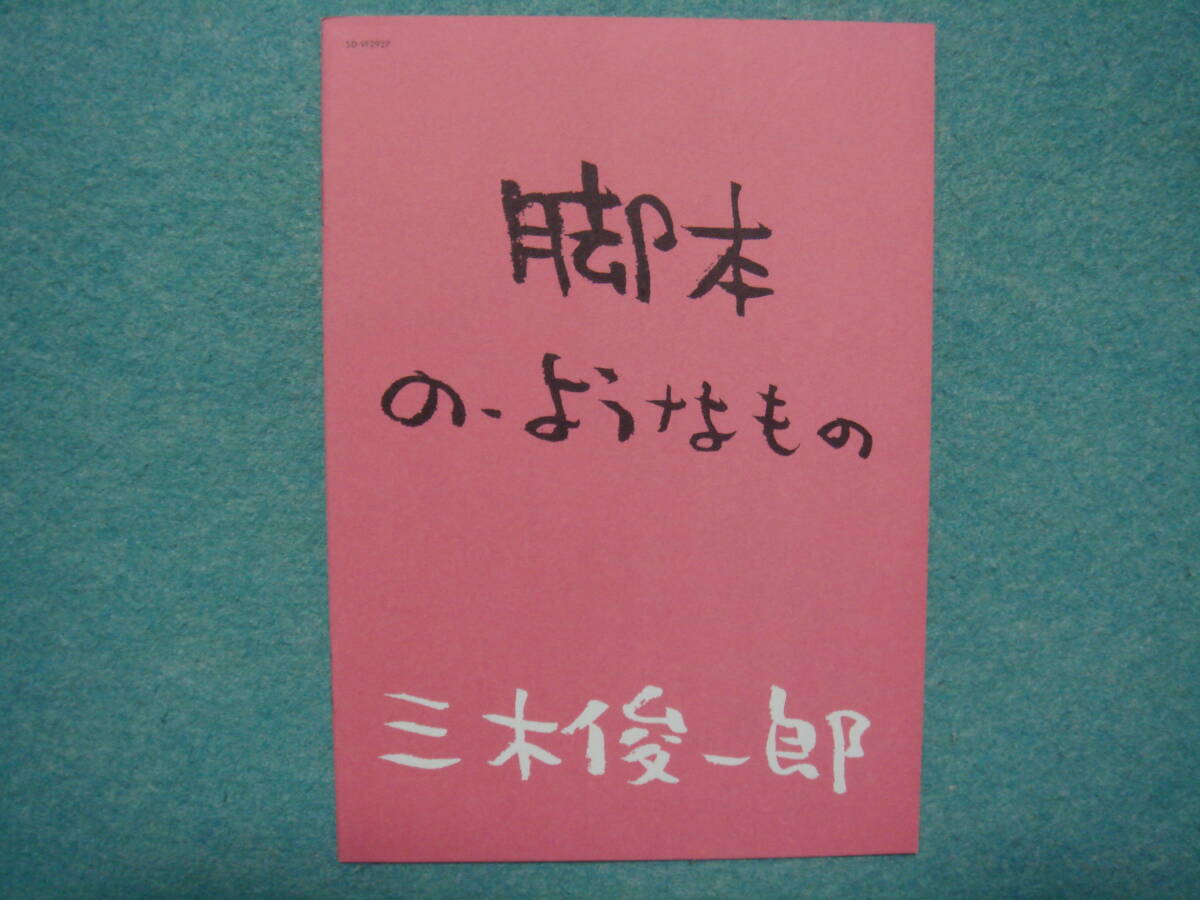 SD-VF2927
脚本
の-ようなもの
三木俊一郎